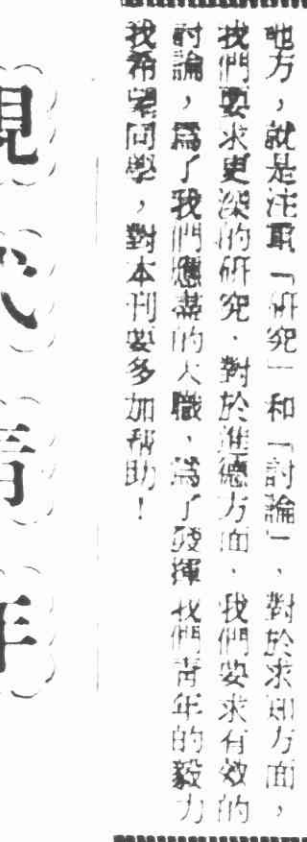 地方，就是注重「研究」和「討論」，對於求知方面，
我們要求更深的研究．對於進德方面．我們要求有效的
討論，爲了我們應盡的天職、爲了發揮我們青年的毅力
我希望同學，對本刊要多加帮助！
現代青年